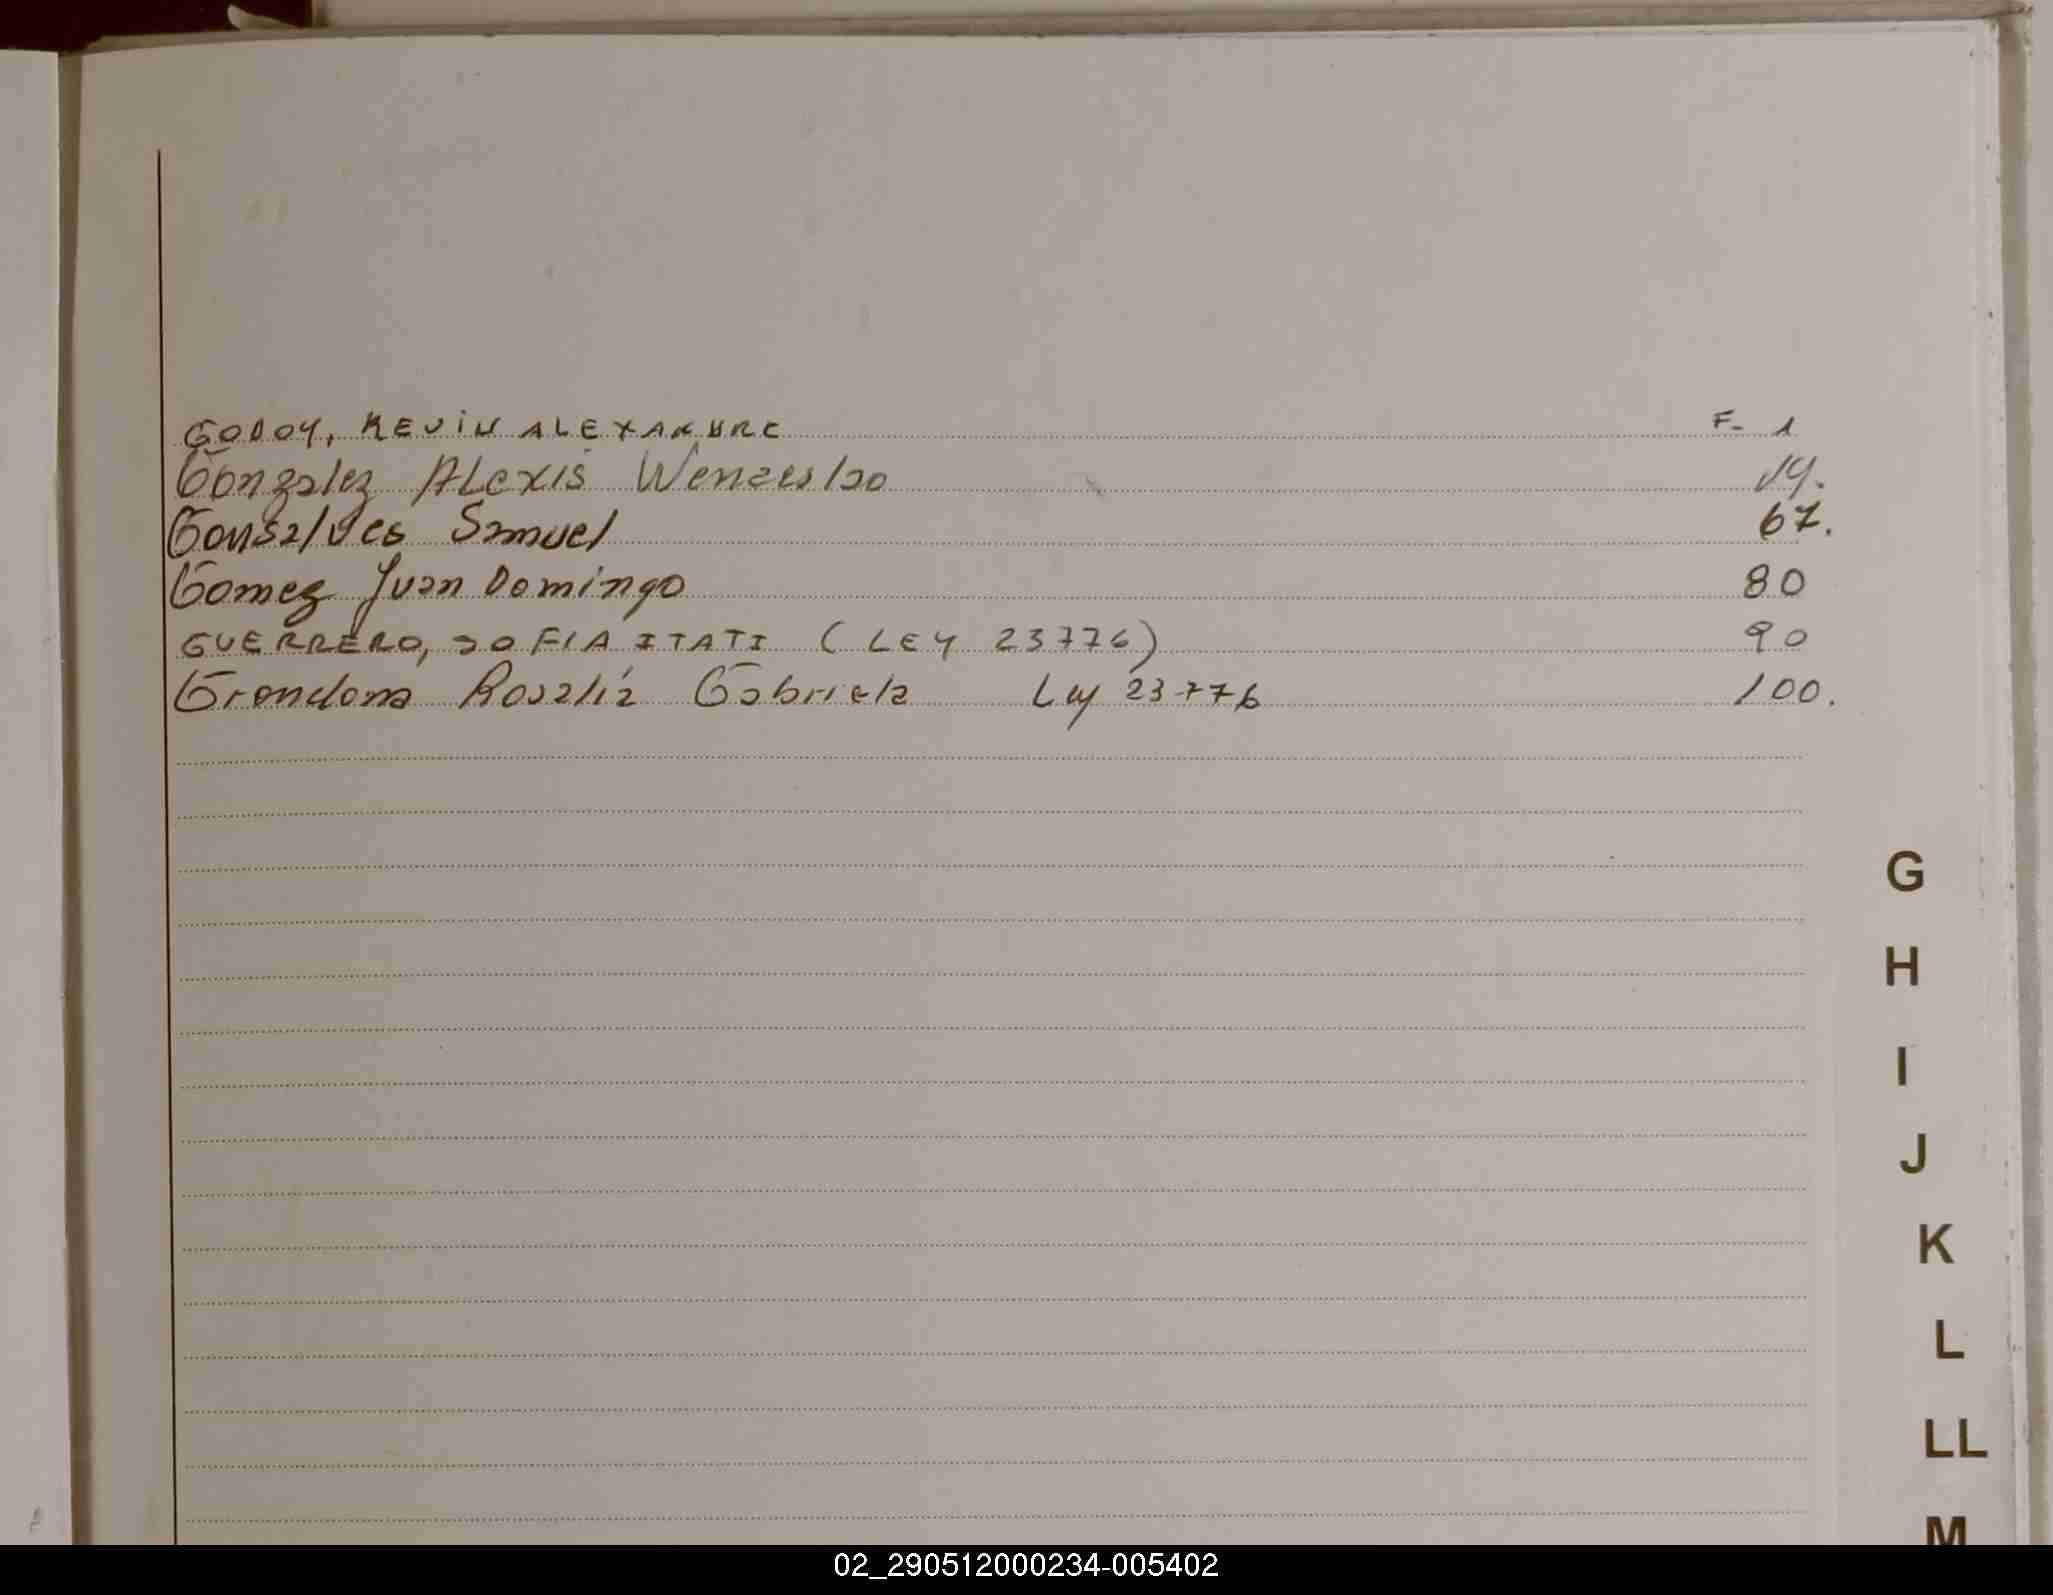 GODOY, KEVIN ALEXANDRE F- 1
Gonzalez Alexis Wenzeslao 14.
Gonsalves Samuel 67.
Gomez Juan Domingo 80
GUERRERO, SOFIA ITATI (LEY 23776) 90
Grondona Rosalía Gabriela Ley 23776 100.
G
H
I
J
K
L
LL
M
02_290512000234-005402